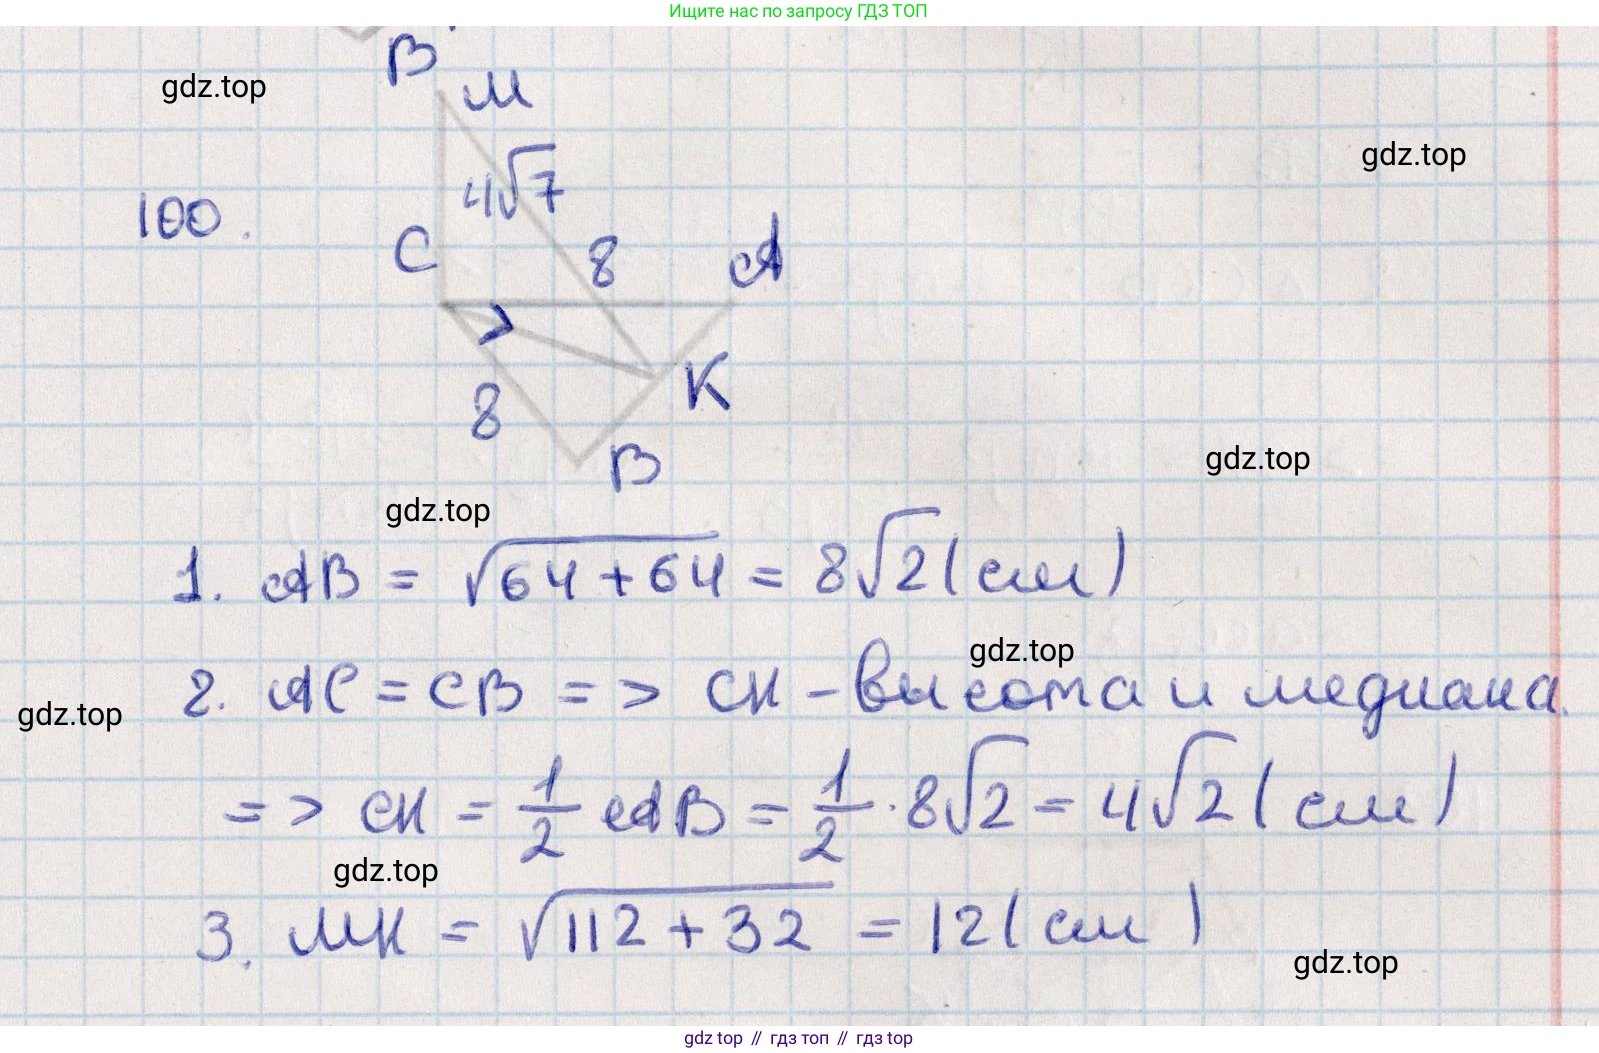 Ищите нас по запросу ГДЗ ТОП
B
M
gdz.top
gdz.top
4√7
100.
C
8
A
8
K
B
gdz.top
gdz.top
1. AB = √64 + 64 = 8√2 (см)
gdz.top
2. AC = CB => CK - высота и медиана.
gdz.top
=> CK = 1/2 AB = 1/2 · 8√2 = 4√2 (см)
gdz.top
3. MK = √112 + 32 = 12 (см)
gdz.top
gdz top // гдз топ // гдз top